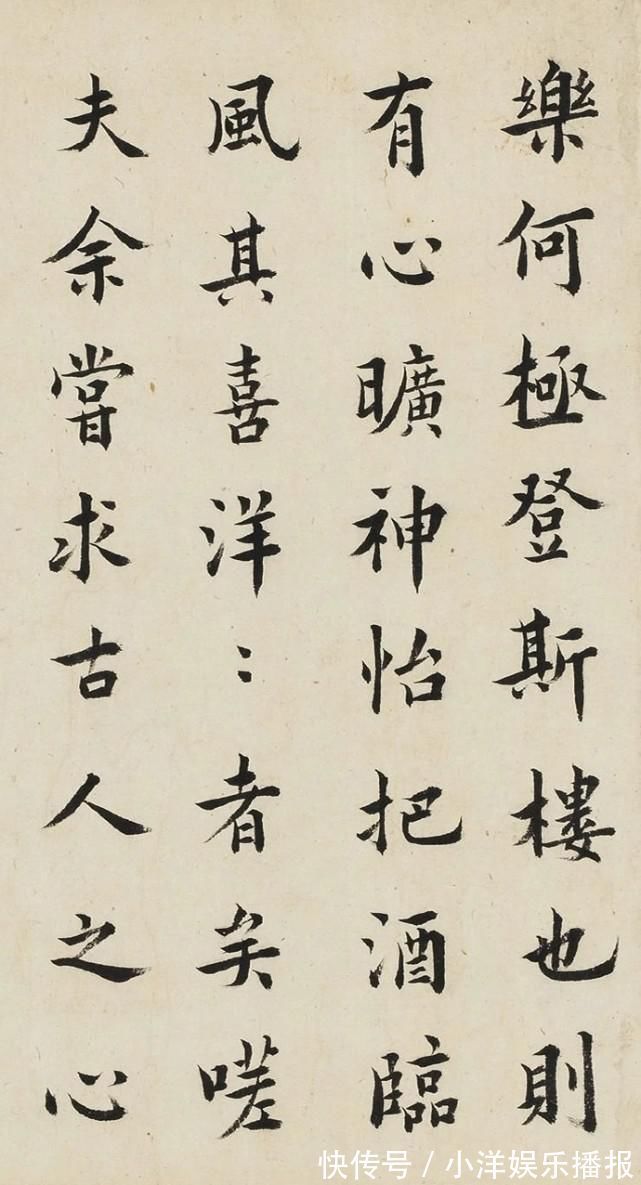 樂何極登斯樓也則
有心曠神怡把酒臨
風其喜洋〻者矣嗟
夫余嘗求古人之心
快传号 / 小洋娱乐播报